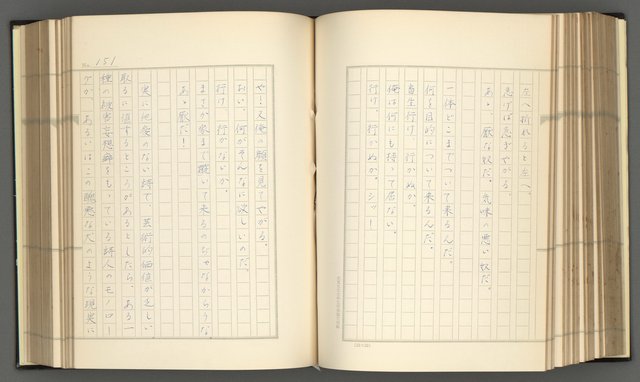 左へ折れると左へ、
急げば急ぎやがる。
あゝ、厭な奴だ。気味の悪い奴だ。
一体どこまでついて来るんだ。
何を目的について来るんだ。
畜生行け、行かぬか。
俺は何にも持つて居ない。
行け、行かぬか。シッー
や、又俺の顔を見てやがる。
おい、何がそんなに欲しいのだ。
行け、行かないか。
まさか家まで蹤いて来るのぢやなからうな
あゝ厭だ！
実に他愛のない詩で、芸術的価値が乏しい。
取るに値するところがあるとしたら、ある一
種の被害妄想癖をもっている詩人のモノロー
グか、あるいはこの醜悪な犬のような現実に
No. 151